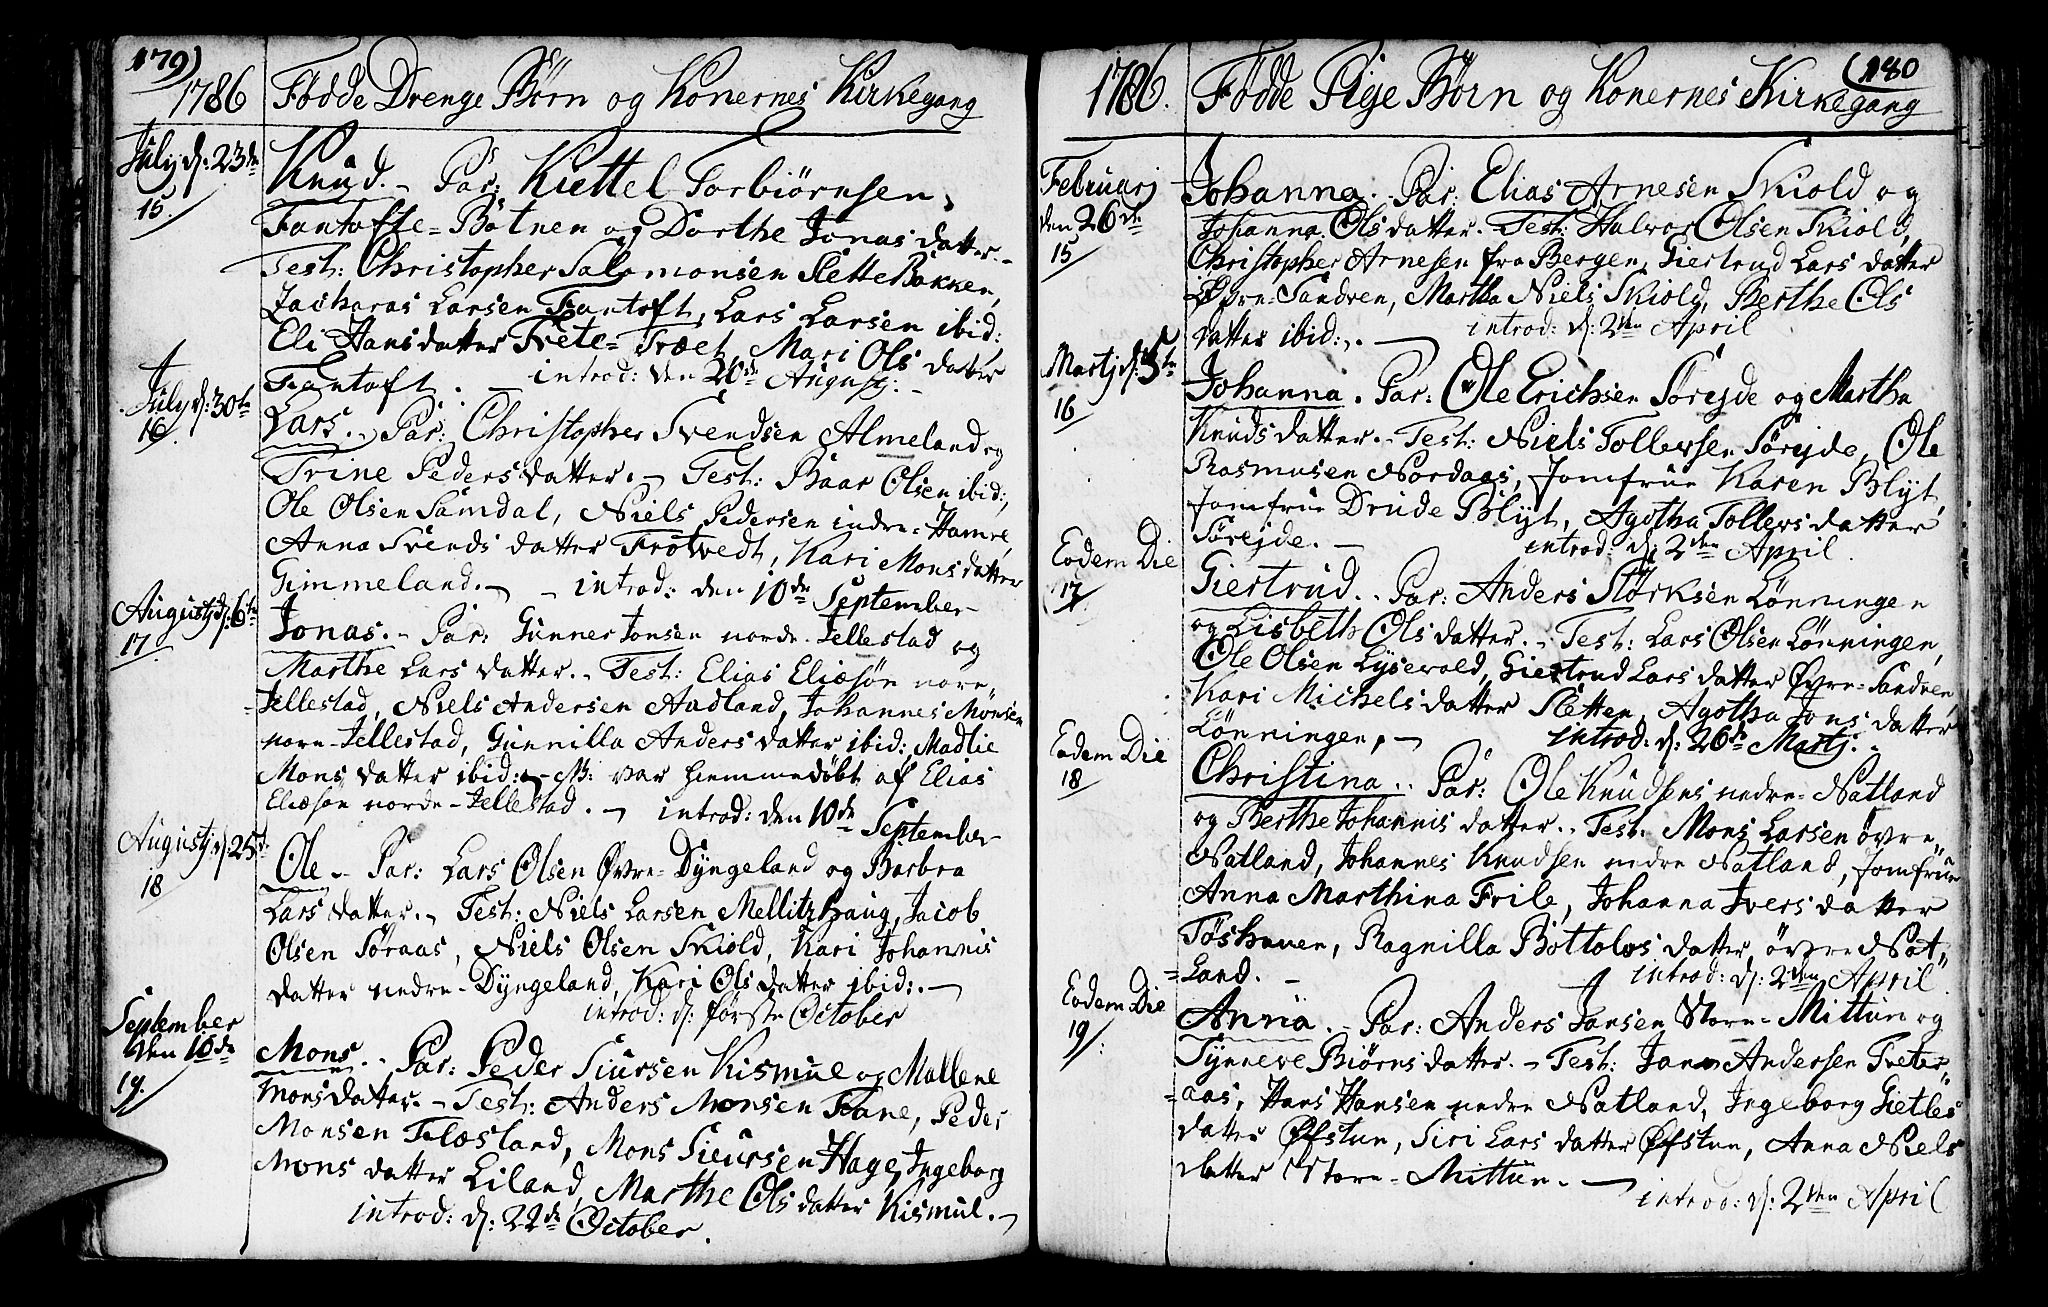 179)
1786 Fødde Drenge Børn og Konernes Kirkegang
July d: 23de Knud. - Par: Kiettel Torbiørnsen,
15. Fantofte-Botnen og Dorthe Jonas datter. -
Test: Christopher Salomonsen SletteBakken,
Zacharas Larsen Fantoft, Lars Larsen ibid:,
Eli Hansdatter Tvete-Træet, Mari Ols datter
Fantoft. - introd: den 20de Augustj. -
July d: 30te Lars. - Par: Christopher Svendsen Almeland og
16. Trine Peders datter. - Test: Baar Olsen ibid:,
Ole Olsen Samdal, Niels Pedersen indre-Hamre,
Anna Svends datter Trotvedt, Kari Mons datter
Gimmeland. - introd: den 10de September -
Augustj d: 6te Jonas. - Par: Gunner Jonsen nordr-Jellestad og
17. Marthe Lars datter. - Test: Elias Eliæsøn nore-
-Jellestad, Niels Andersen Aadland, Johannes Monsen
nore-Jellestad, Gunnilla Anders datter ibid: Madlie
Mons datter ibid: - NB: var hiemmedøbt af Elias
Eliæsøn nordre-Jellestad. - introd: den 10de September -
Augustj d: 25de Ole - Par: Lars Olsen Øvre-Dyngeland og Barbra
18 Lars datter. - Test: Niels Larsen Mellitzhaug, Jacob
Olsen Søraas, Niels Olsen Skiold, Kari Johannis
datter nedre-Dyngeland, Kari Ols datter ibid: -
introd: d: første October
September
den 10de Mons. - Par: Peder Siursen Kismul og Mallene
19. Monsdatter. - Test: Anders Monsen Fane, Peder
Monsen Flæsland, Mons Siursen Hage, Ingeborg
Mons datter Liland, Marthe Ols datter Kismul. -
introd: d: 22de October.
(180
1786. Fødde Pige Børn og Konernes Kirkegang
Februarj Johanna. Par: Elias Arnesen Skiold og
den 26de Johanna Olsdatter. Test: Halvor Olsen Skiold,
15 Christopher Arnesen fra Bergen, Giertrud Lars datter
Øvre-Sandven, Martha Niels Skiold, Berthe Ols
datter ibid:. - introd: d: 2den April
Martj d: 5te Johanna. Par: Ole Erichsen Sørejde og Martha
16 Knuds datter. - Test: Niels Tollevsen Sørejde, Ole
Rasmusen Nordaas, Jomfrue Karen Blyt,
Jomfrue Drude Blyt, Agotha Tollevs datter
Sørejde. - introd: d: 2den April.
Eodem Die Giertrud. - Par: Anders Størksen Lønningen
17 og Lisbeth Ols datter. - Test: Lars Olsen Lønningen,
Ole Olsen Lysevold, Giertrud Lars datter Øvre-Sandven,
Kari Michels datter Sletten, Agotha Jons datter
Lønningen, - introd: d: 26de Martj. -
Eodem Die Christina. - Par: Ole Knudsens nedre-Natland
18 og Berthe Johannis datter. - Test: Mons Larsen øvre-
Natland, Johannes Knudsen nedre Natland, Jomfrue
Anna Marthina Frile, Johanna Ivers datter
Tøshaven, Ragnilla Bottolvs datter øvre Nat-
=land. - introd: d: 2den April.
Eodem Die Anna. - Par: Anders Jansen Store-Mittun og
19 Synneve Biørns datter. - Test: Jan Andersen Tveter-
=aas, Hans Hansen nedre Natland, Ingeborg Gietles
datter Øfstun, Siri Lars datter Øfstun, Anna Niels
datter Store-Mittun. -
introd: d: 2den April